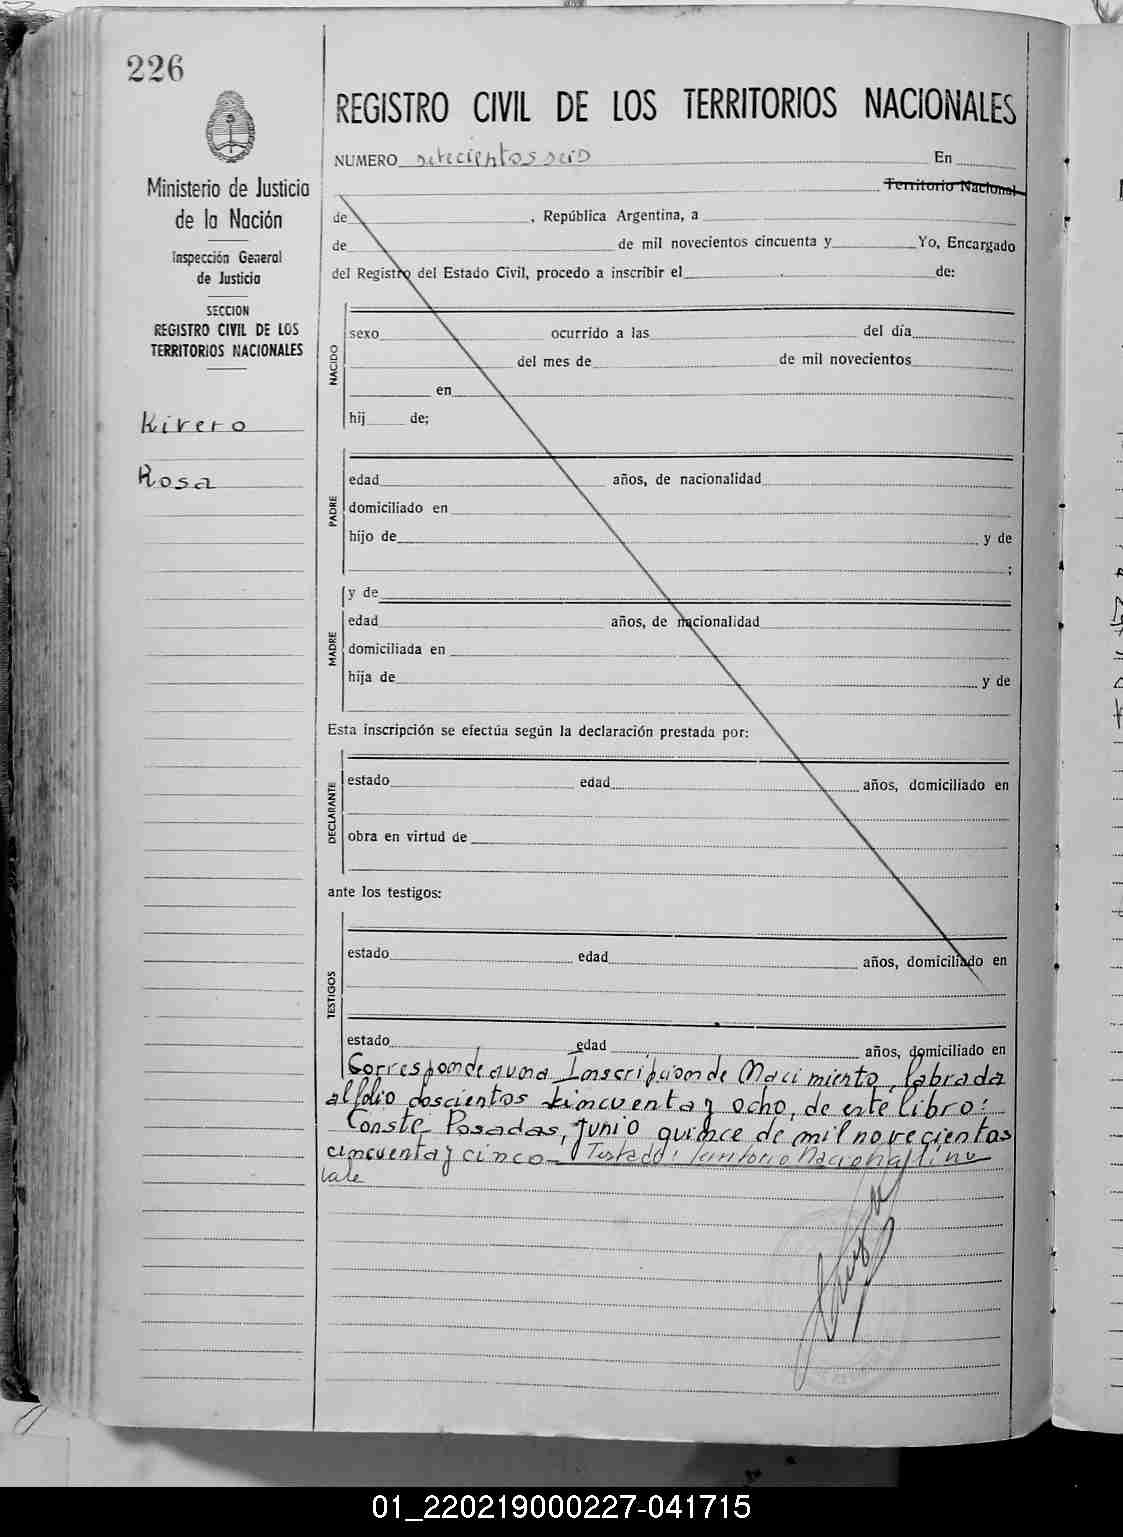 226
Ministerio de Justicia
de la Nación
Inspección General
de Justicia
SECCION
REGISTRO CIVIL DE LOS
TERRITORIOS NACIONALES
Kirero
Rosa
REGISTRO CIVIL DE LOS TERRITORIOS NACIONALES
NUMERO setecientos seis En
Territorio Nacional
de , República Argentina, a
de de mil novecientos cincuenta y Yo, Encargado
del Registro del Estado Civil, procedo a inscribir el de:
NACIDO
sexo ocurrido a las del día
del mes de de mil novecientos
en
hij de;
PADRE
edad años, de nacionalidad
domiciliado en
hijo de y de
;
MADRE
y de
edad años, de nacionalidad
domiciliada en
hija de y de
Esta inscripción se efectúa según la declaración prestada por:
DECLARANTE
estado edad años, domiciliado en
obra en virtud de
ante los testigos:
TESTIGOS
estado edad años, domiciliado en
estado edad años, domiciliado en
Corresponde a una Inscripcion de Nacimiento, labrada
al folio doscientos cincuenta y ocho, de este libro:
Conste Posadas, Junio quince de mil novecientos
cincuenta y cinco – Testado: Territorio Nacional no
vale
01_220219000227-041715